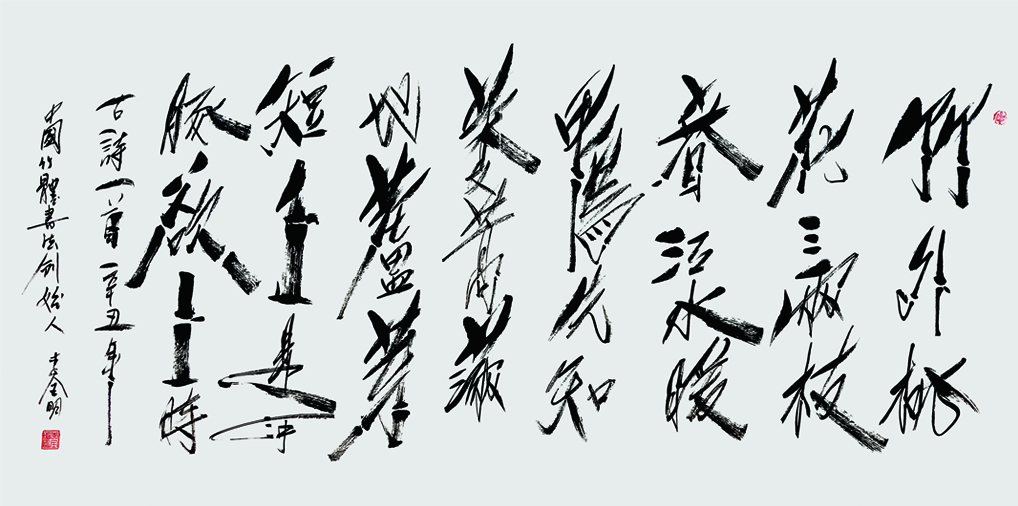 竹外桃
花三兩枝
春江水暖
鴨先知
蔞蒿滿
地蘆芽
短正是河
豚欲上時
古詩一首辛丑年
中國竹體書法創始人